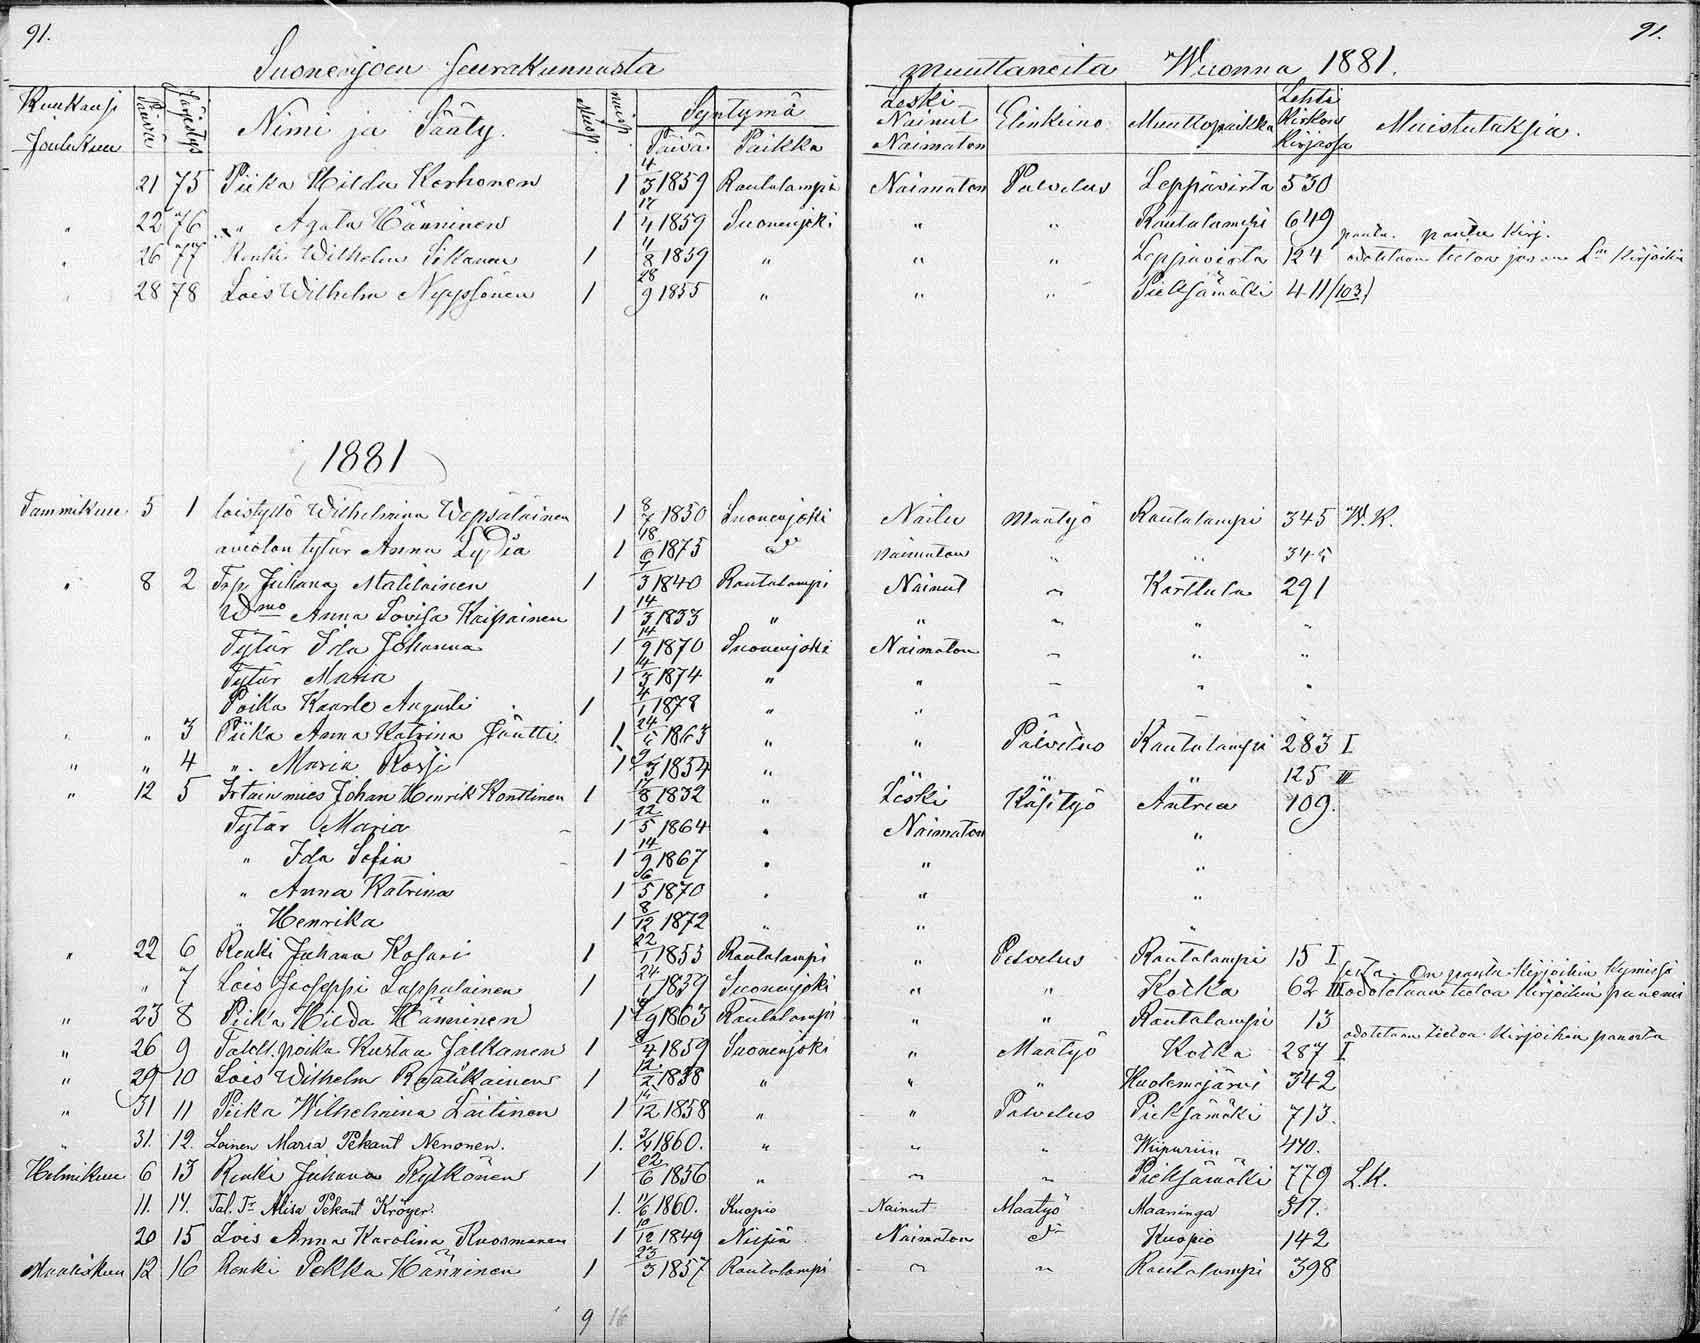 91. 91.
Suonenjoen seurakunnasta muuttaneita Wuonna 1881.
Kuukausi Päivä Järjestys Nimi ja Sääty. Miesp. naisp. Syntymä Päivä Paikka Leski Nainut Naimaton Elinkeino Muuttopaikka Lehti Kirkon Kirjassa Muistutuksia.
Joulukuu
21 75 Piika Hilda Korhonen 1 4/3 1859 Rautalampi Naimaton Palvelus Leppävirta 530
" 22 76 " Agata Hänninen 1 17/4 1859 Suonenjoki " " Rautalampi 649
" 26 77 Renki Wilhelm Sikanen 1 4/8 1859 " " " Leppävirta 124 odotetaan tietoa
" 28 78 Lois Wilhelm Nyyssönen 1 28/9 1855 " " " Pieksämäki 411/103
1881
Tammikuu 5 1 loistyttö Wilhelmina Wepsäläinen 1 8/7 1850 Suonenjoki Naitu Maatyö Rautalampi 345 W.K.
avioton tytär Anna Lydia 1 18/6 1875 d° Naimaton " " 345
" 8 2 Juhana Matilainen 1 7/3 1840 Rautalampi Nainut " Karttula 291
Wmo Anna Lovisa Kaipainen 1 14/3 1833 " " " " "
Tytär Ida Johanna 1 14/9 1870 Suonenjoki Naimaton " " "
Tytär Maria 1 14/3 1874 " " " " "
Poika Kaarle Augusti 1 4/1 1878 " "
" " 3 Piika Anna Katrina Jäntti 1 24/5 1863 " " Palvelus Rautalampi 283 I
" " 4 " Maria Rossi 1 9/3 1854 " " " " 125 III
" 12 5 Irtain mies Johan Henrik Konttinen 1 17/8 1832 " Leski Käsityö Antrea 109.
Tytär Maria 1 22/5 1864 " Naimaton "
" Ida Sofia 1 14/9 1867 " " "
" Anna Katrina 1 16/5 1870 " " "
" Henrika 1 8/12 1872 " " "
" 22 6 Renki Juhana Kosuri 1 22/1 1853 Rautalampi " Palvelus Rautalampi 15 I
" 7 Lois Joseppi Lappalainen 1 24/1 1839 Suonenjoki " " Kotka 62 III odotetaan tietoa Kirjoihin
" 23 8 Piika Hilda Hänninen 1 1863 Rautalampi " " Rautalampi 13
" 26 9 Taloll. poika Kustaa Jalkanen 1 8/4 1859 Suonenjoki " Maatyö Kotka 287 I odotetaan tietoa Kirjoihin panosta
" 29 10 Lois Wilhelm Ryätikäinen 1 12/2 1838 " " " Kuolemajärvi 342
" 31 11 Piika Wilhelmina Laitinen 1 14/12 1858 " " Palvelus Pieksämäki 713.
" 31. 12. Loinen Maria Pekant Nenonen. 1. 3/4 1860. " " " Wiipuriin 470.
Helmikuu 6 13 Renki Juhana Rytkönen 1 22/6 1856 " " " Pieksämäki 779 L.K.
11. 14. Tal. Tr Alisa Pekant Kröger. 1. 11/6 1860. Kuopio Nainut Maatyö Maaninga 317.
20 15 Lois Anna Karolina Kuosmanen 1 10/12 1849 Nilsiä Naimaton d° Kuopio 142
Maaliskuu 12 16 Renki Pekka Hänninen 1 23/3 1857 Rautalampi " " Rautalampi 398
9 16